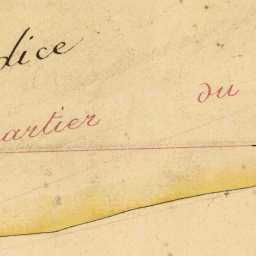 dice
artier du